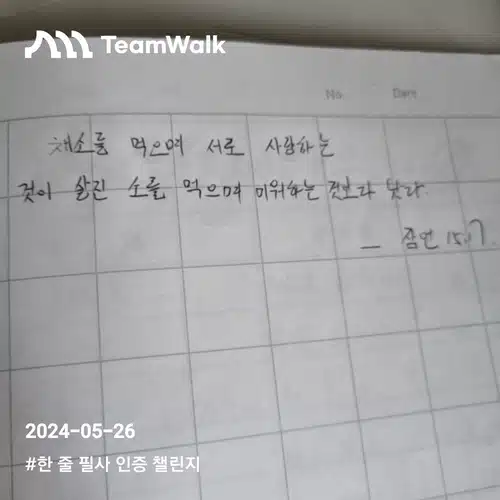 TeamWalk
No.
Date
채소를 먹으며 서로 사랑하는
것이 살진 소를 먹으며 미워하는 것보다 낫다.
— 잠언 15:17.
2024-05-26
#한 줄 필사 인증 챌린지